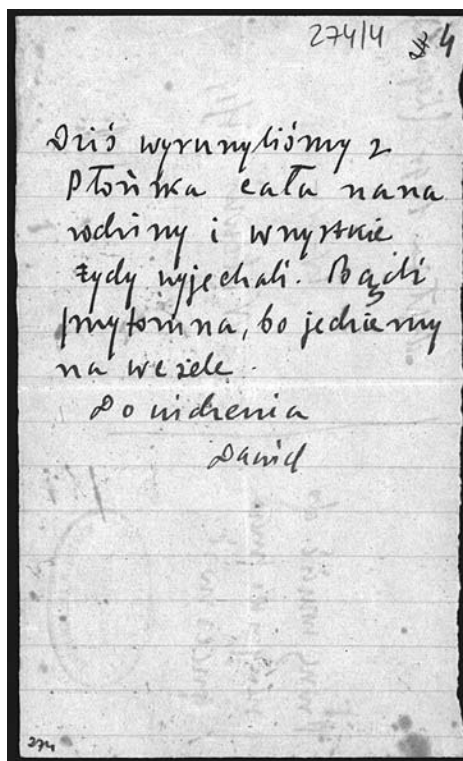 274/4 4
Dziś wyruszyliśmy z
Płońska cała nasza
rodziny i wszystkie
Żydy wyjechali. Bądź
przytomna, bo jedziemy
na wesele.
Do widzenia
Dawid
274